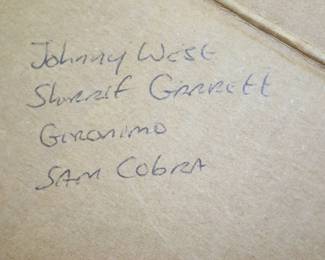 Johnny West
Sherrif Garrett
Gironimo
Sam Cobra